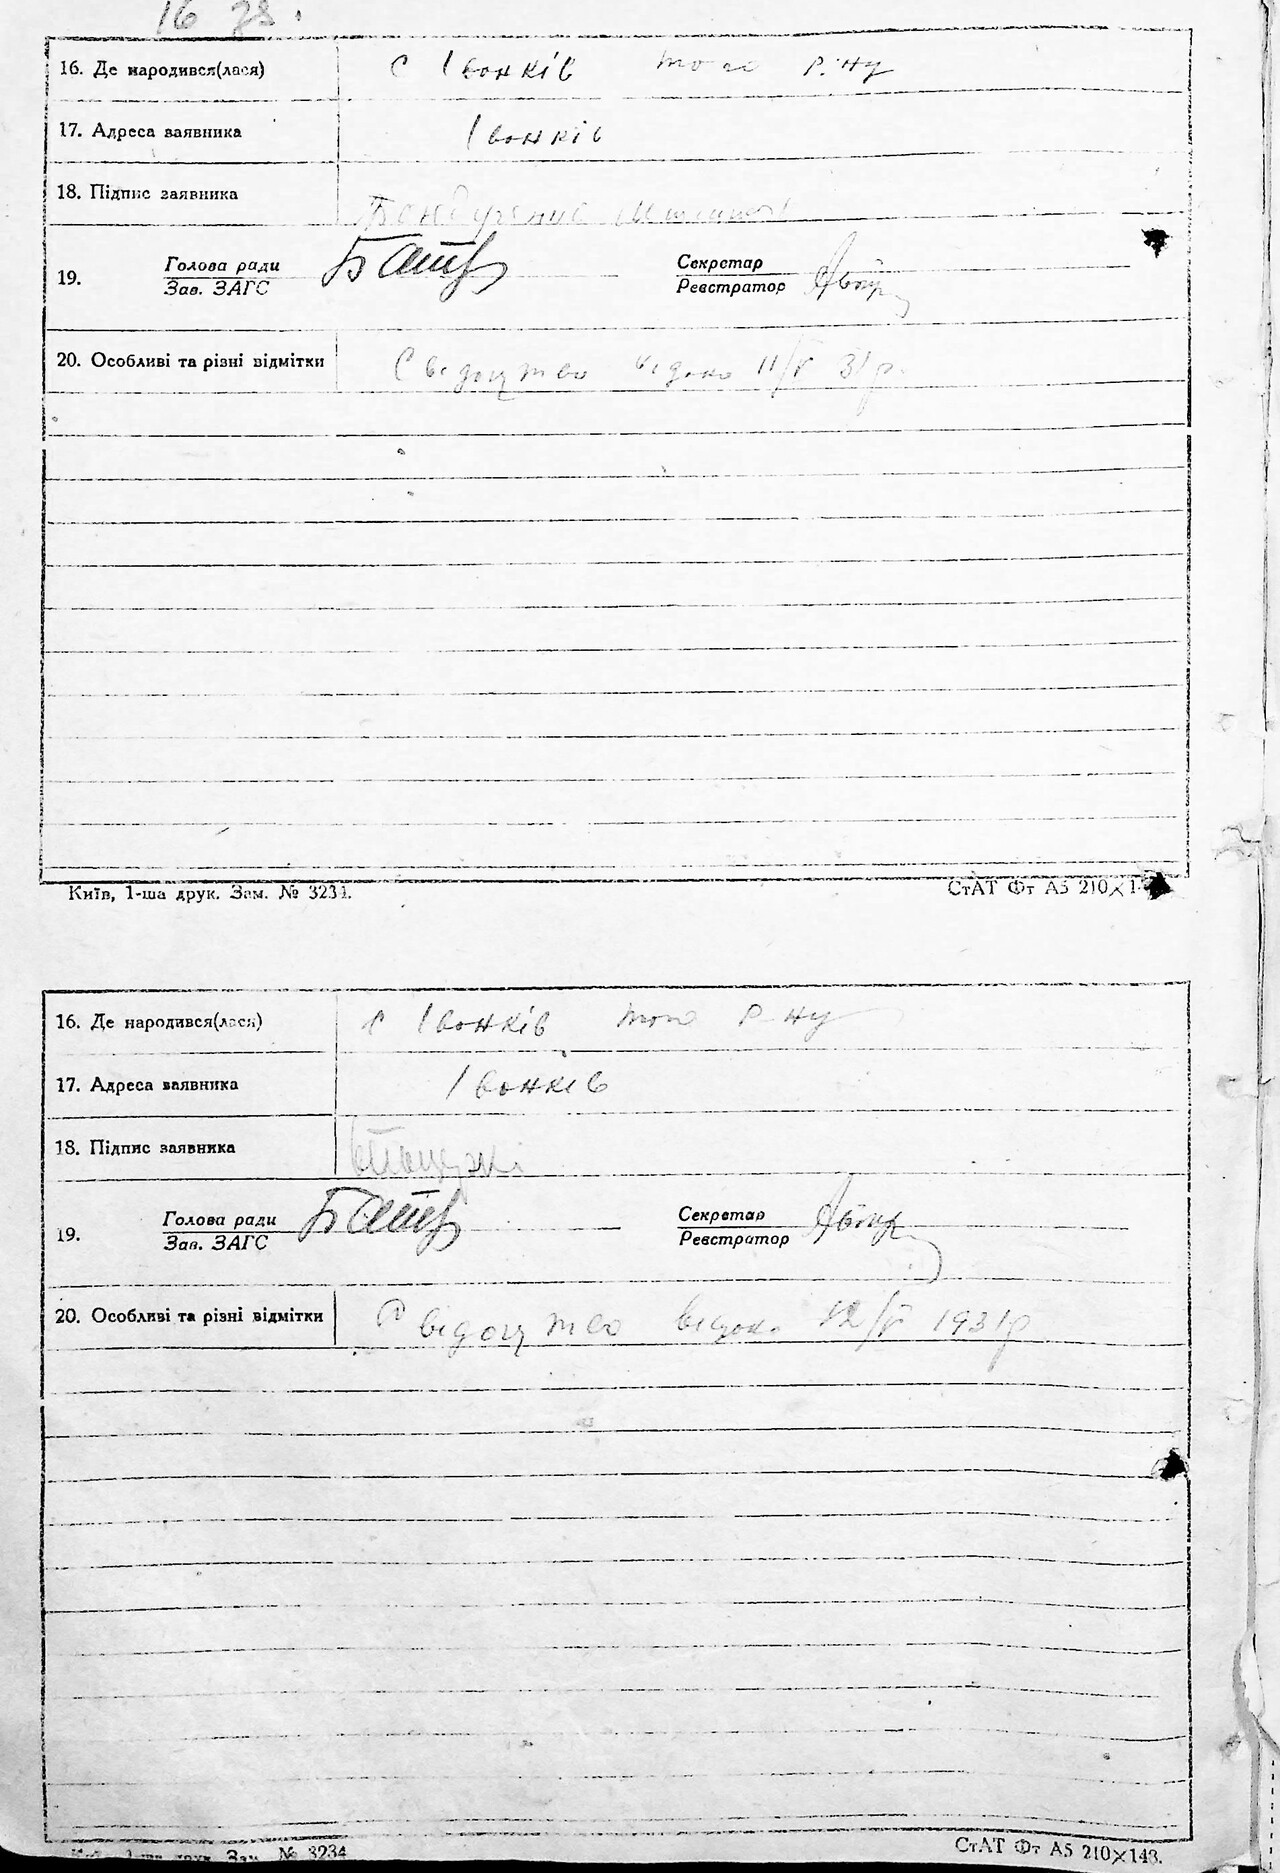 16
16. Де народився(лася) с Іванків того р-ну
17. Адреса заявника Іванків
18. Підпис заявника
19. Голова ради Секретар
Зав. ЗАГС Реєстратор
20. Особливі та різні відмітки Свідоцтво відано 11/V 31 р.
Київ, 1-ша друк. Зам. № 3234. СтАТ Фт А5 210×148
16. Де народився(лася) с Іванків того р-ну
17. Адреса заявника Іванків
18. Підпис заявника
19. Голова ради Секретар
Зав. ЗАГС Реєстратор
20. Особливі та різні відмітки Свідоцтво відано 12/V 1931 р
Київ, 1-ша друк. Зам. № 3234 СтАТ Фт А5 210×148.